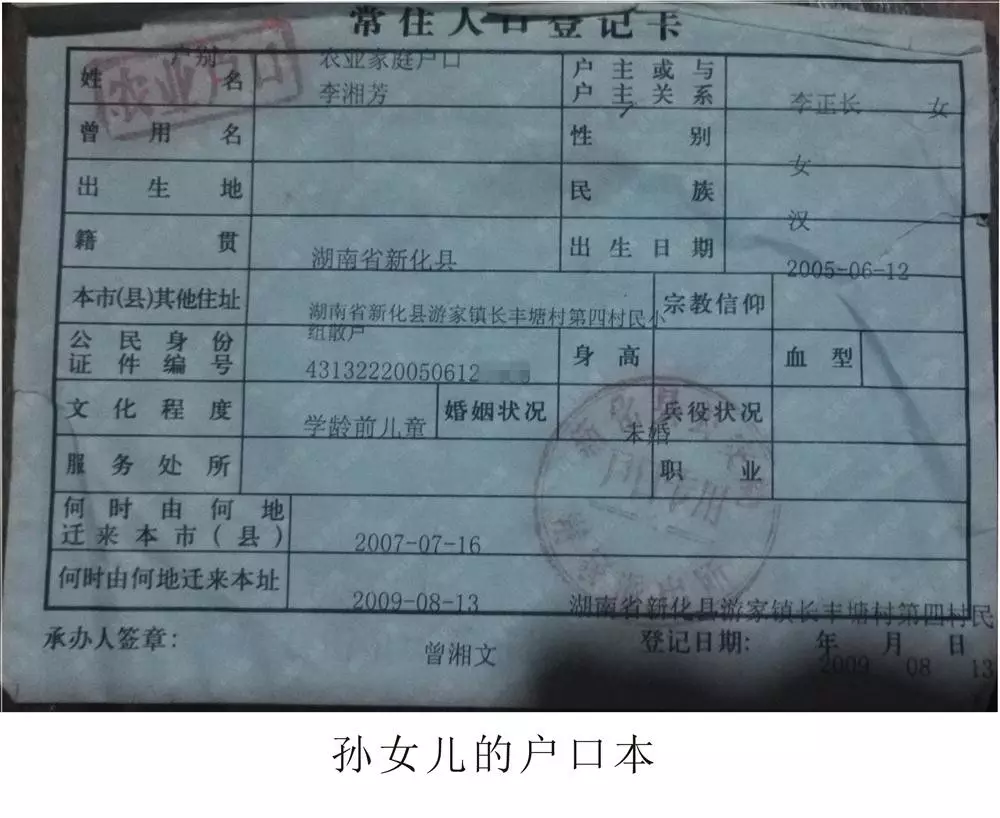 常住人口登记卡
户别 农业家庭户口
农业户口
姓名 李湘芳 户主或与户主关系 李正长 女
曾用名 性别 女
出生地 民族 汉
籍贯 湖南省新化县 出生日期 2005-06-12
本市(县)其他住址 湖南省新化县游家镇长丰塘村第四村民小组散户 宗教信仰
公民身份证件编号 43132220050612 身高 血型
文化程度 学龄前儿童 婚姻状况 未婚 兵役状况
服务处所 职业
何时由何地迁来本市(县) 2007-07-16
何时由何地迁来本址 2009-08-13 湖南省新化县游家镇长丰塘村第四村民
承办人签章: 曾湘文 登记日期: 2009年08月13日
孙女儿的户口本